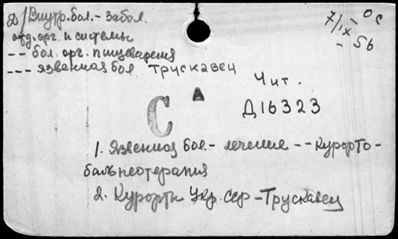 Д/Внутр. бол. - Забол.
отд. орг. и системы
-- бол. орг. пищеварения
--- язвенная бол. Трускавец
7/IX - 56
Чит.
Д16323
С
1. Язвенная бол. - лечение -- Курорто-
бальнеотерапия
2. Курорты Укр. ССР - Трускавец